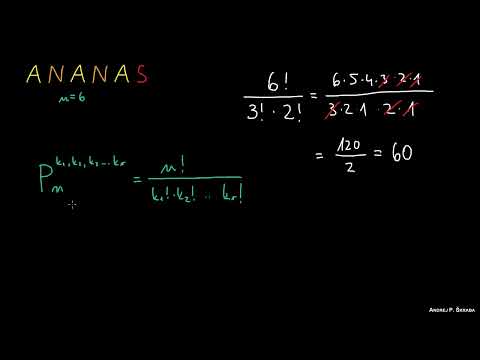 ANANAS
n=6
6! / 3! · 2! = 6·5·4·3·2·1 / 3·2·1 · 2·1
= 120 / 2 = 60
P_n^{k₁,k₂,k₃...kᵣ} = n! / k₁!·k₂! .. kᵣ!
ANDREJ P. ŠKRABA